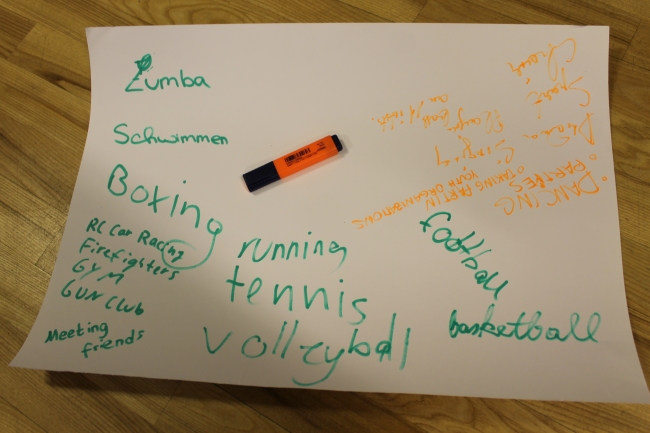 Zumba
Schwimmen
Boxing
RC Car Racing
Firefighters
GYM
GUN Club
Meeting
friends
running
tennis
Volleyball
football
basketball
Sport
Drama
Singing
Playing
DANCING
PARTIES
TAKING PART IN
YOUTH ORGANISATIONS